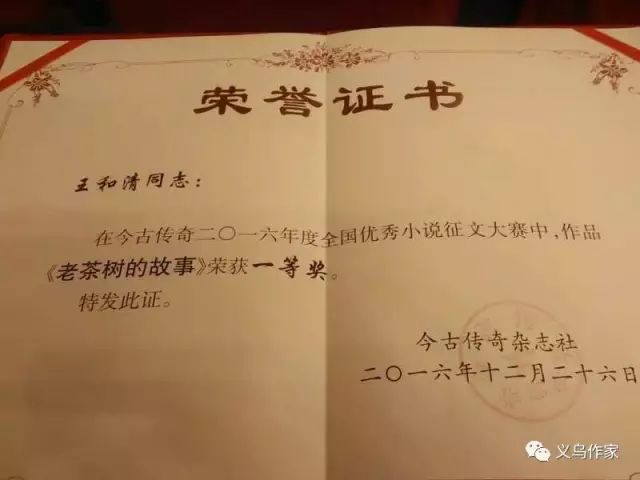 荣誉证书
王和清同志：
在今古传奇二〇一六年度全国优秀小说征文大赛中，作品
《老茶树的故事》荣获一等奖。
特发此证。
今古传奇杂志社
二〇一六年十二月二十六日
义乌作家